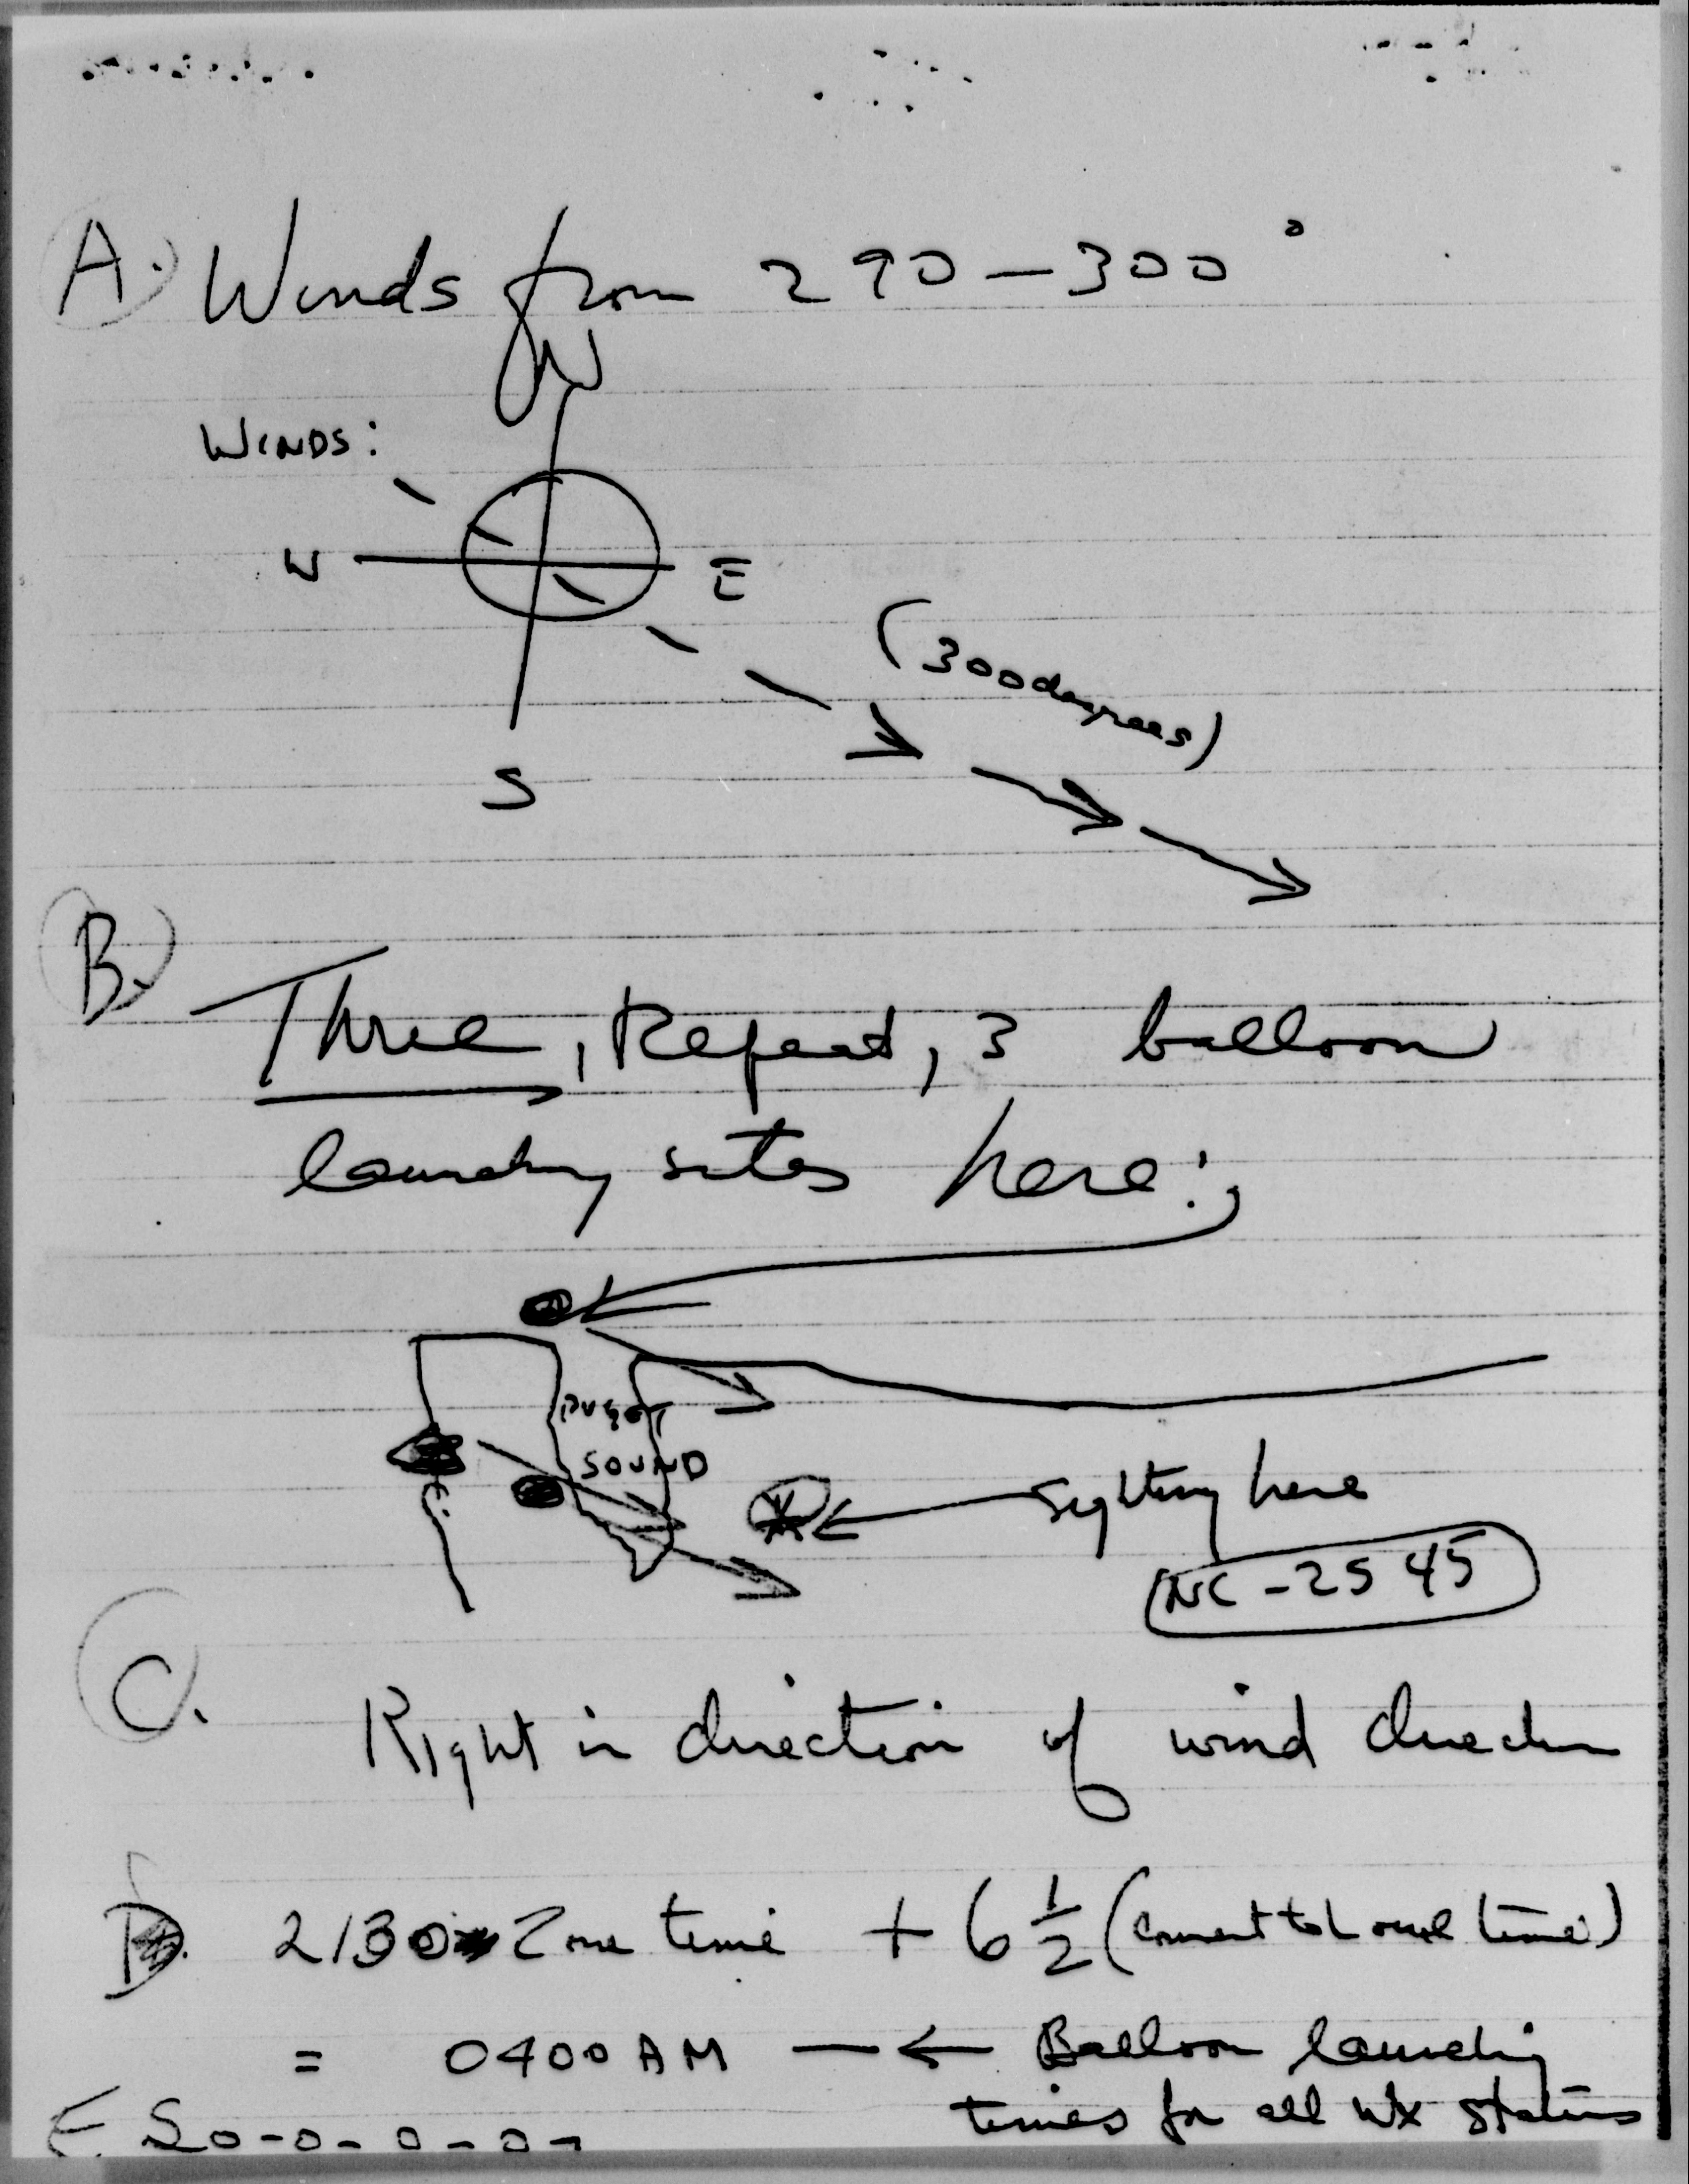 A. Winds from 290-300°
N
WINDS:
W E
(300 degrees)
S
B. Three, Repeat, 3 balloon
launching sites here:
PUGET
SOUND
Sighting here
NC-2545
C. Right in direction of wind direction
D. 2130 Zone time + 6 1/2 (convert to Local time)
= 0400 AM — ← Balloon launching
times for all Wx stations
E So-o-o-o-